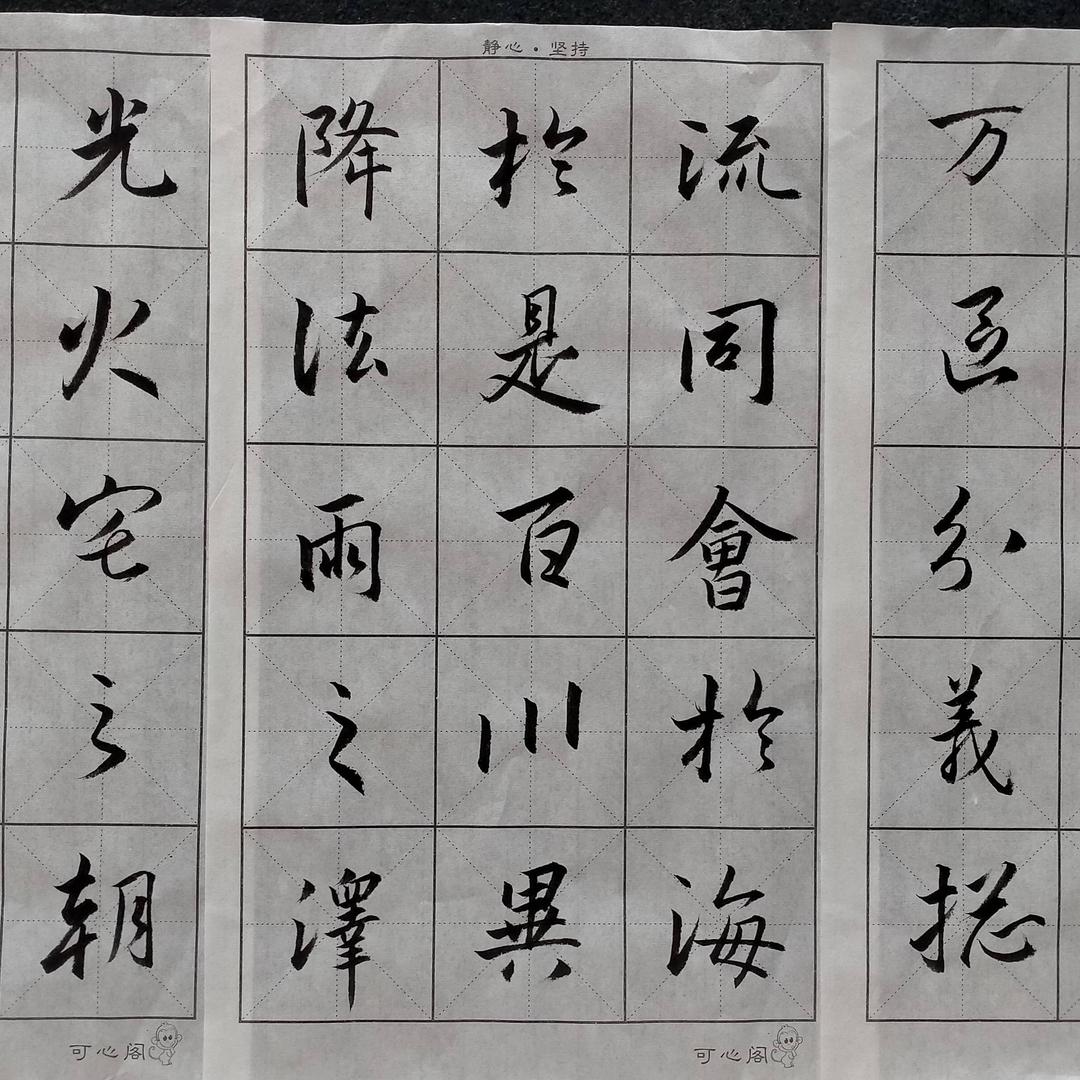 静心·坚持
光火宅之朝
降法雨之澤
於是百川異
流同會於海
万區分義捴
可心阁
可心阁